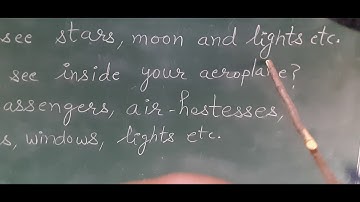 see stars, moon and lights etc.
see inside your aeroplane?
assengers, air-hostesses,
s, windows, lights etc.